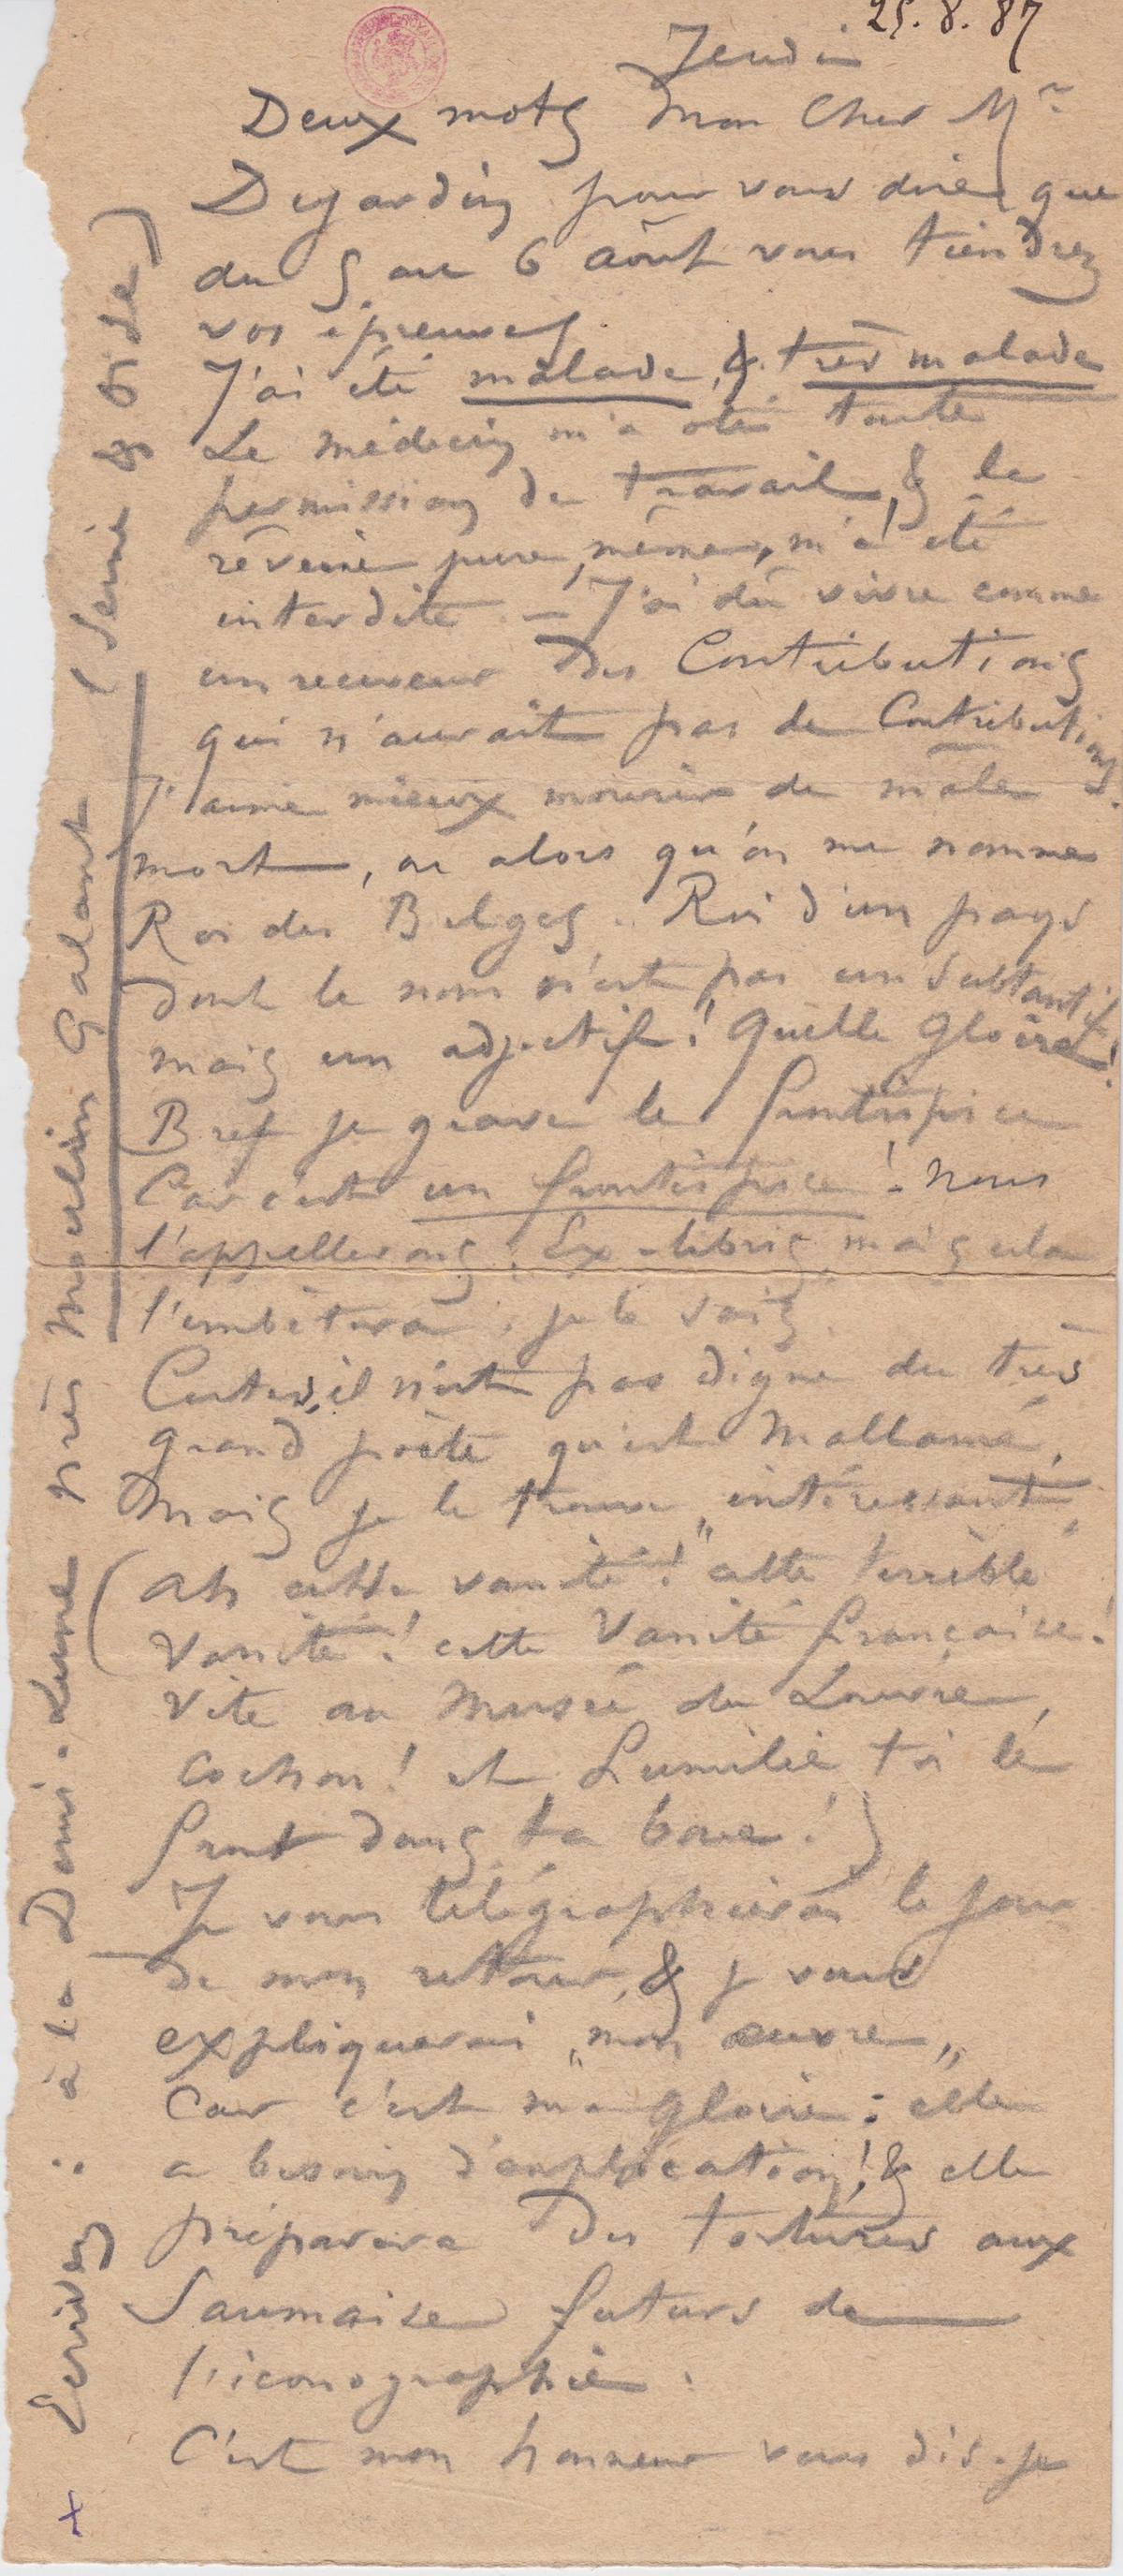 25.8.87
Jeudi
Deux mots mon Cher Mr
Dujardin pour vous dire que
du 5 au 6 Août vous tiendrez
vos épreuves.
J'ai été malade, & très malade
Le médecin m'a ôté toute
permission de travail, & la
rêverie pure, même, m'a été
interdite. — J'ai dû vivre comme
un receveur des Contributions
qui n'aurait pas de Contributions.
J'aime mieux mourir de mâle
mort, ou alors qu'on me nomme
Roi des Belges. Roi d'un pays
dont le nom n'est pas un substantif
mais un adjectif! Quelle gloire!
Bref je grave le frontispice
Car c'est un frontispice! – nous
l'appellerons: Ex-libris, mais cela
l'embêtera, je le sais
Certes, il n'est pas digne du très
grand poète qu'est Mallarmé,
Mais je le trouve "intéressant,
(Ah cette vanité!" cette terrible
Vanité! cette Vanité française!
Vite au Musée du Louvre,
cochon! et humilie toi le
front dans ta boue!)
Je vous télégraphierai le jour
de mon retour, & je vous
expliquerai "mon œuvre„
Car c'est ma gloire: elle
a besoin d'explication! & elle
préparera des tortures aux
Saumaise futurs de
l'iconographie.
C'est mon honneur vous dis-je
+ Ecrivez : à la Demi-Lune près Moulin Galant (Seine & Oise)